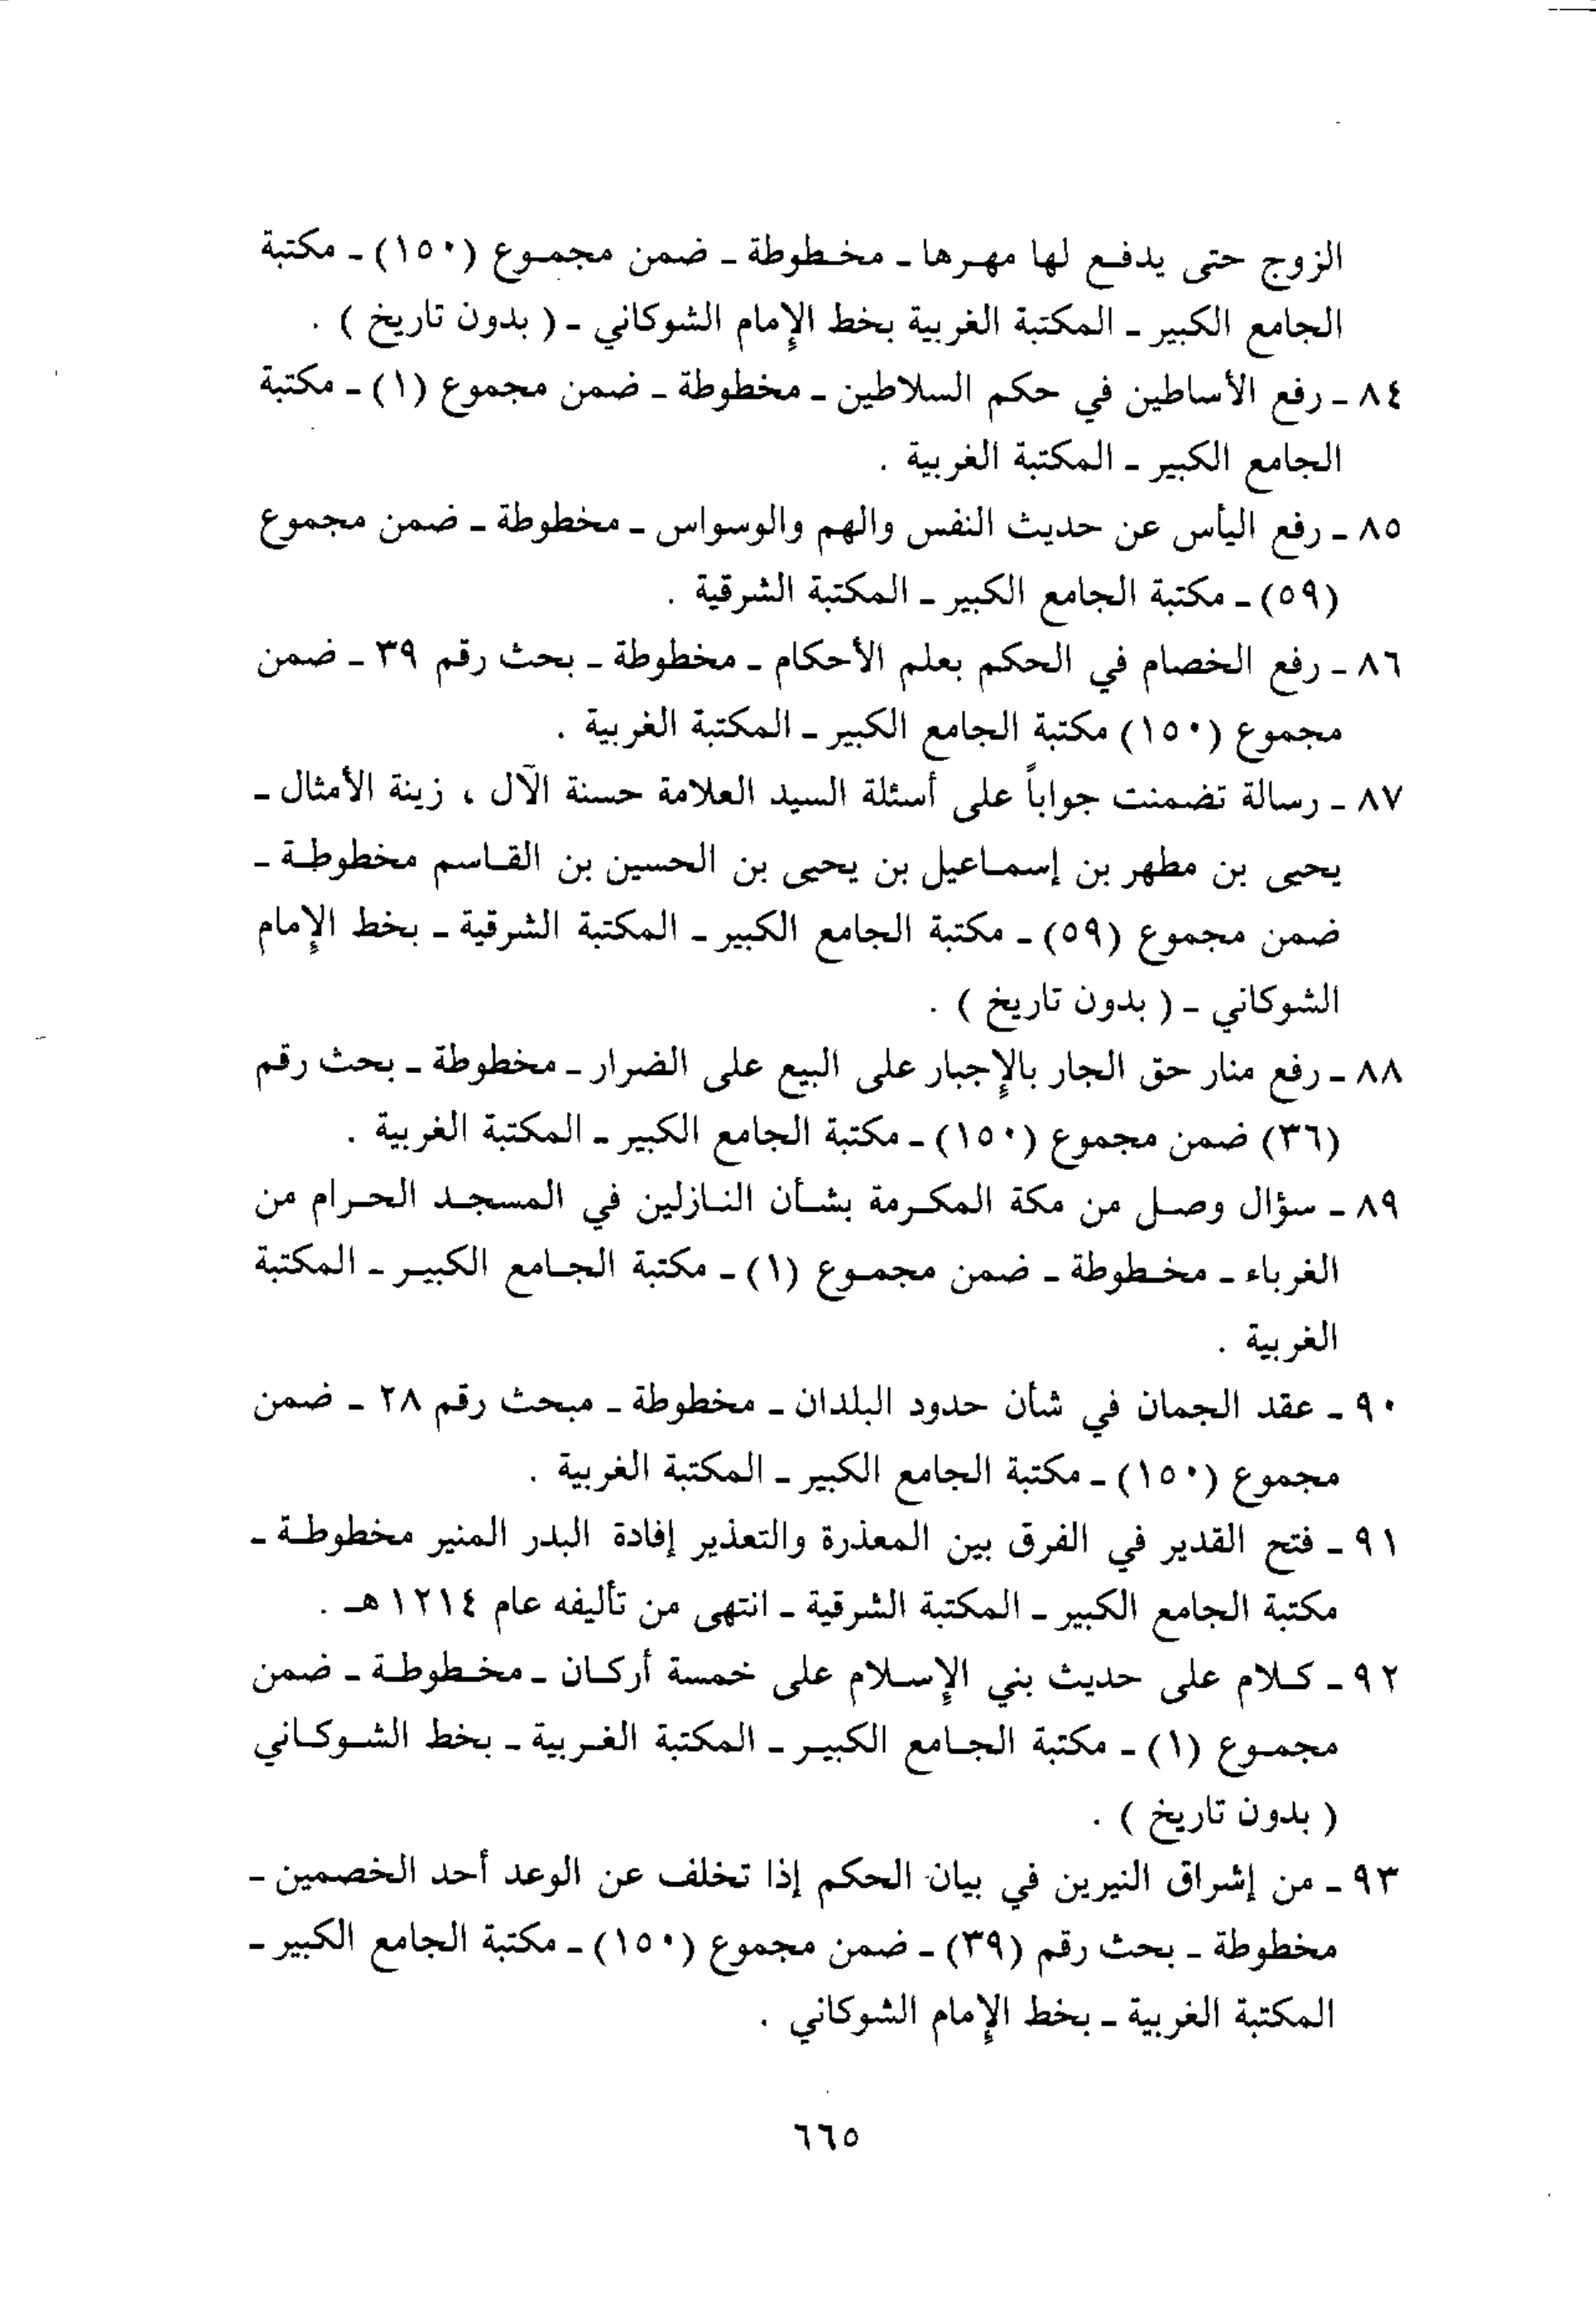 الزوج حتى يدفع لها مهرها ـ مخطوطة ـ ضمن مجموع (١٥٠) ـ مكتبة
الجامع الكبير ـ المكتبة الغربية بخط الإمام الشوكاني ـ ( بدون تاريخ ) .
٨٤ ـ رفع الأساطين في حكم السلاطين ـ مخطوطة ـ ضمن مجموع (١) ـ مكتبة
الجامع الكبير ـ المكتبة الغربية .
٨٥ ـ رفع اليأس عن حديث النفس والهم والوسواس ـ مخطوطة ـ ضمن مجموع
(٥٩) ـ مكتبة الجامع الكبير ـ المكتبة الشرقية .
٨٦ ـ رفع الخصام في الحكم بعلم الأحكام ـ مخطوطة ـ بحث رقم ٣٩ ـ ضمن
مجموع (١٥٠) مكتبة الجامع الكبير ـ المكتبة الغربية .
٨٧ ـ رسالة تضمنت جواباً على أسئلة السيد العلامة حسنة الآل ، زينة الأمثال ـ
يحيى بن مطهر بن إسماعيل بن يحيى بن الحسين بن القاسم مخطوطة ـ
ضمن مجموع (٥٩) ـ مكتبة الجامع الكبير ـ المكتبة الشرقية ـ بخط الإمام
الشوكاني ـ ( بدون تاريخ ) .
٨٨ ـ رفع منار حق الجار بالإجبار على البيع على الضرار ـ مخطوطة ـ بحث رقم
(٣٦) ضمن مجموع (١٥٠) ـ مكتبة الجامع الكبير ـ المكتبة الغربية .
٨٩ ـ سؤال وصل من مكة المكرمة بشأن النازلين في المسجد الحرام من
الغرباء ـ مخطوطة ـ ضمن مجموع (١) ـ مكتبة الجامع الكبير ـ المكتبة
الغربية .
٩٠ ـ عقد الجمان في شأن حدود البلدان ـ مخطوطة ـ مبحث رقم ٢٨ ـ ضمن
مجموع (١٥٠) ـ مكتبة الجامع الكبير ـ المكتبة الغربية .
٩١ ـ فتح القدير في الفرق بين المعذرة والتعذير إفادة البدر المنير مخطوطة ـ
مكتبة الجامع الكبير ـ المكتبة الشرقية ـ انتهى من تأليفه عام ١٢١٤ هـ .
٩٢ ـ كلام على حديث بني الإسلام على خمسة أركان ـ مخطوطة ـ ضمن
مجموع (١) ـ مكتبة الجامع الكبير ـ المكتبة الغربية ـ بخط الشوكاني
( بدون تاريخ ) .
٩٣ ـ من إشراق النيرين في بيان الحكم إذا تخلف عن الوعد أحد الخصمين ـ
مخطوطة ـ بحث رقم (٣٩) ـ ضمن مجموع (١٥٠) ـ مكتبة الجامع الكبير ـ
المكتبة الغربية ـ بخط الإمام الشوكاني .
٦٦٥